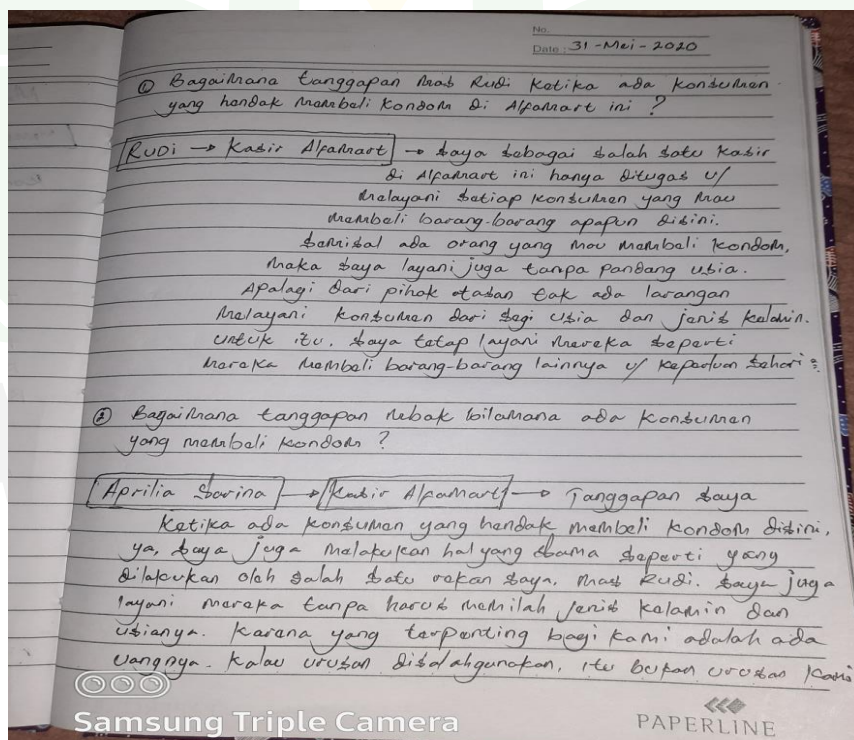 No.
Date : 31 - Mei - 2020
① Bagaimana tanggapan mas Rudi ketika ada konsumen
yang hendak membeli kondom di Alfamart ini ?
Rudi → Kasir Alfamart → saya sebagai salah satu kasir
di Alfamart ini hanya ditugas u/
melayani setiap konsumen yang mau
membeli barang-barang apapun disini.
semisal ada orang yang mau membeli kondom,
maka saya layani juga tanpa pandang usia.
Apalagi dari pihak atasan tak ada larangan
melayani konsumen dari segi usia dan jenis kelamin.
untuk itu, saya tetap layani mereka seperti
mereka membeli barang-barang lainnya u/ keperluan sehari
② Bagaimana tanggapan mbak bilamana ada konsumen
yang membeli kondom ?
Aprilia Sarina → Kasir Alfamart → Tanggapan saya
ketika ada konsumen yang hendak membeli kondom disini,
ya, saya juga melakukan hal yang sama seperti yang
dilakukan oleh salah satu rekan saya, mas Rudi. saya juga
layani mereka tanpa harus memilah jenis kelamin dan
usianya. karena yang terpenting bagi kami adalah ada
uangnya. kalau urusan disalahgunakan, itu bukan urusan kami
Samsung Triple Camera
PAPERLINE